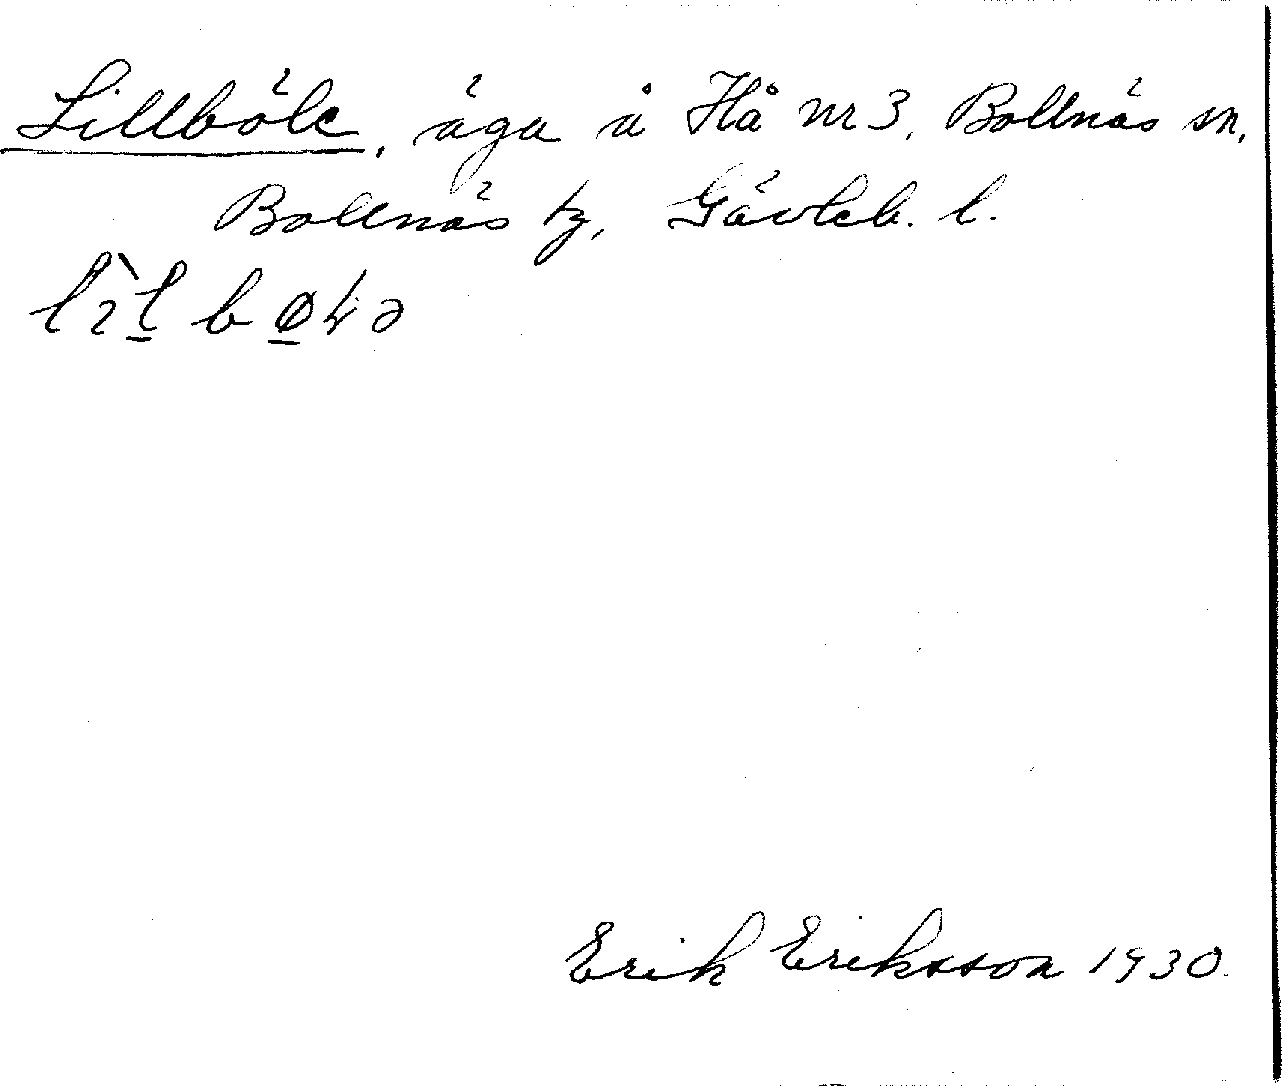 Lillböle, äga å Hå nr 3, Bollnäs sn,
Bollnäs tg, Gävleb. l.
Erik Eriksson 1930